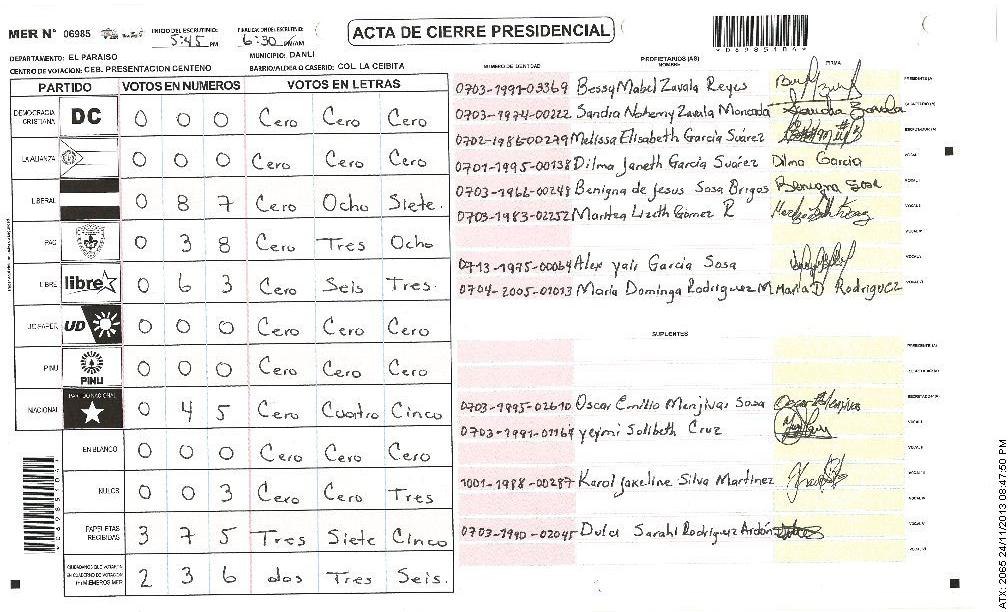 MER N° 06985
INICIO DEL ESCRUTINIO: 5:45 PM
FINALIZACION DEL ESCRUTINIO: 6:30 PM/AM
ACTA DE CIERRE PRESIDENCIAL
DEPARTAMENTO: EL PARAISO
MUNICIPIO: DANLI
CENTRO DE VOTACION: CEB. PRESENTACION CENTENO
BARRIO/ALDEA O CASERIO: COL LA CEIBITA
PARTIDO VOTOS EN NUMEROS VOTOS EN LETRAS
DEMOCRACIA CRISTIANA DC 0 0 0 Cero Cero Cero
LA ALIANZA 0 0 0 Cero Cero Cero
LIBERAL 0 8 7 Cero Ocho Siete.
PAC 0 3 8 Cero Tres Ocho
LIBRE libre 0 6 3 Cero Seis Tres.
UD UD 0 0 0 Cero Cero Cero
PINU PINU 0 0 0 Cero Cero Cero
NACIONAL PARTIDO NACIONAL 0 4 5 Cero Cuatro Cinco
EN BLANCO 0 0 0 Cero Cero Cero
NULOS 0 0 3 Cero Cero Tres
PAPELETAS RECIBIDAS 3 7 5 Tres Siete Cinco
CIUDADANOS QUE VOTARON 2 3 6 dos Tres Seis.
NUMERO DE IDENTIDAD PROPIETARIOS (AS) NOMBRE FIRMA
0703-1991-03369 Bessy Mabel Zavala Reyes
0703-1974-00222 Sandra Nohemy Zavala Moncada Sandra Zavala
0702-1986-00279 Melissa Elisabeth Garcia Suárez
0701-1995-00138 Dilma Janeth Garcia Suárez Dilma Garcia
0703-1966-00248 Benigna de Jesus Sosa Brigos Benigna Sosa
0703-1983-02252 Maritza Lizeth Gomez R
0713-1975-00064 Alex yair Garcia Sosa
0704-2005-01013 Maria Dominga Rodriguez M Maria D Rodriguez
SUPLENTES
0703-1995-02610 Oscar Emilio Menjivas Sosa
0703-1991-01164 yejmi Solibeth Cruz
1001-1988-00287 Karol Jakeline Silva Martinez
0703-1990-02045 Dulce Sarahi Rodriguez Ardón
ATX: 2065 24/11/2013 08:47:50 PM